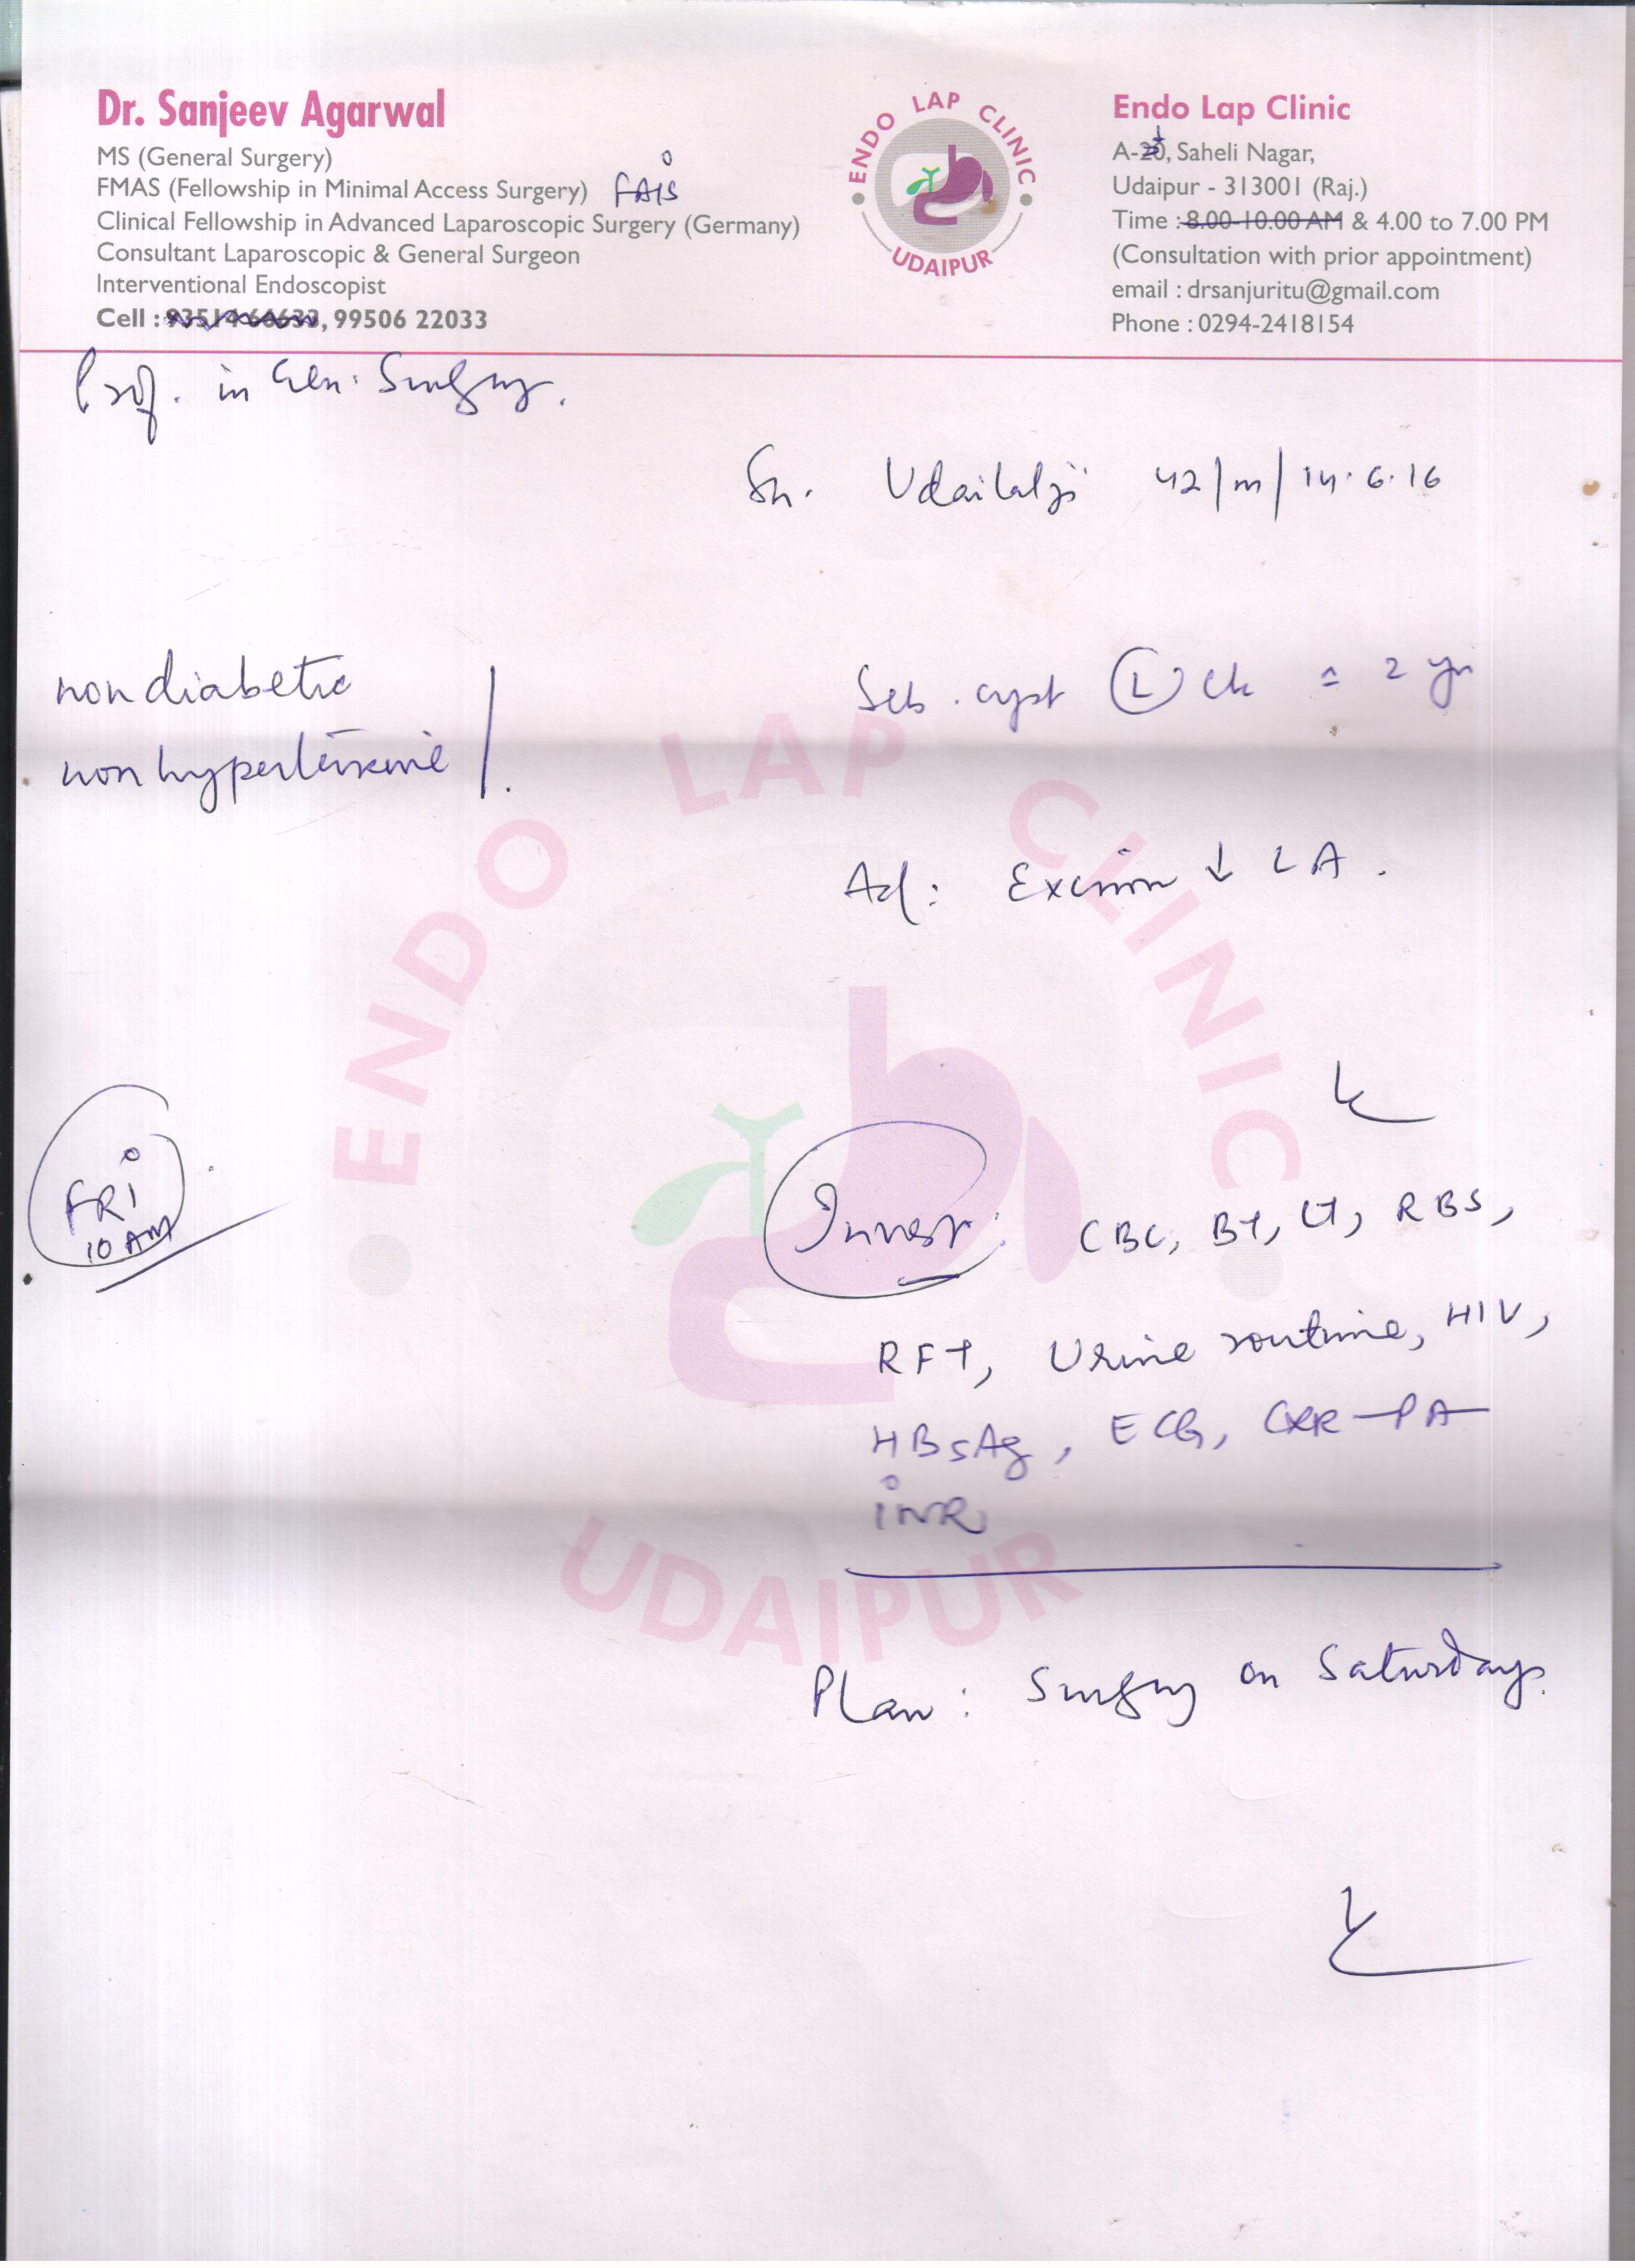 Dr. Sanjeev Agarwal
MS (General Surgery)
FMAS (Fellowship in Minimal Access Surgery) FAIS
Clinical Fellowship in Advanced Laparoscopic Surgery (Germany)
Consultant Laparoscopic & General Surgeon
Interventional Endoscopist
Cell : 93514 60633, 99506 22033
ENDO LAP CLINIC
UDAIPUR
Endo Lap Clinic
A-, Saheli Nagar,
Udaipur - 313001 (Raj.)
Time : 8.00-10.00 AM & 4.00 to 7.00 PM
(Consultation with prior appointment)
email : drsanjuritu@gmail.com
Phone : 0294-2418154
Prof. in Gen. Surgery.
Sh. Udailalji 42/m/14.6.16
non diabetic
non hypertensive
Seb. cyst (L) = 2 yr
Ad: Excision ↓ LA.
FRI
10 AM
Invest: CBC, BT, CT, RBS,
RFT, Urine routine, HIV,
HBsAg, ECG, CXR-PA
INR
Plan: Surgery on Saturday.
ENDO LAP CLINIC
UDAIPUR